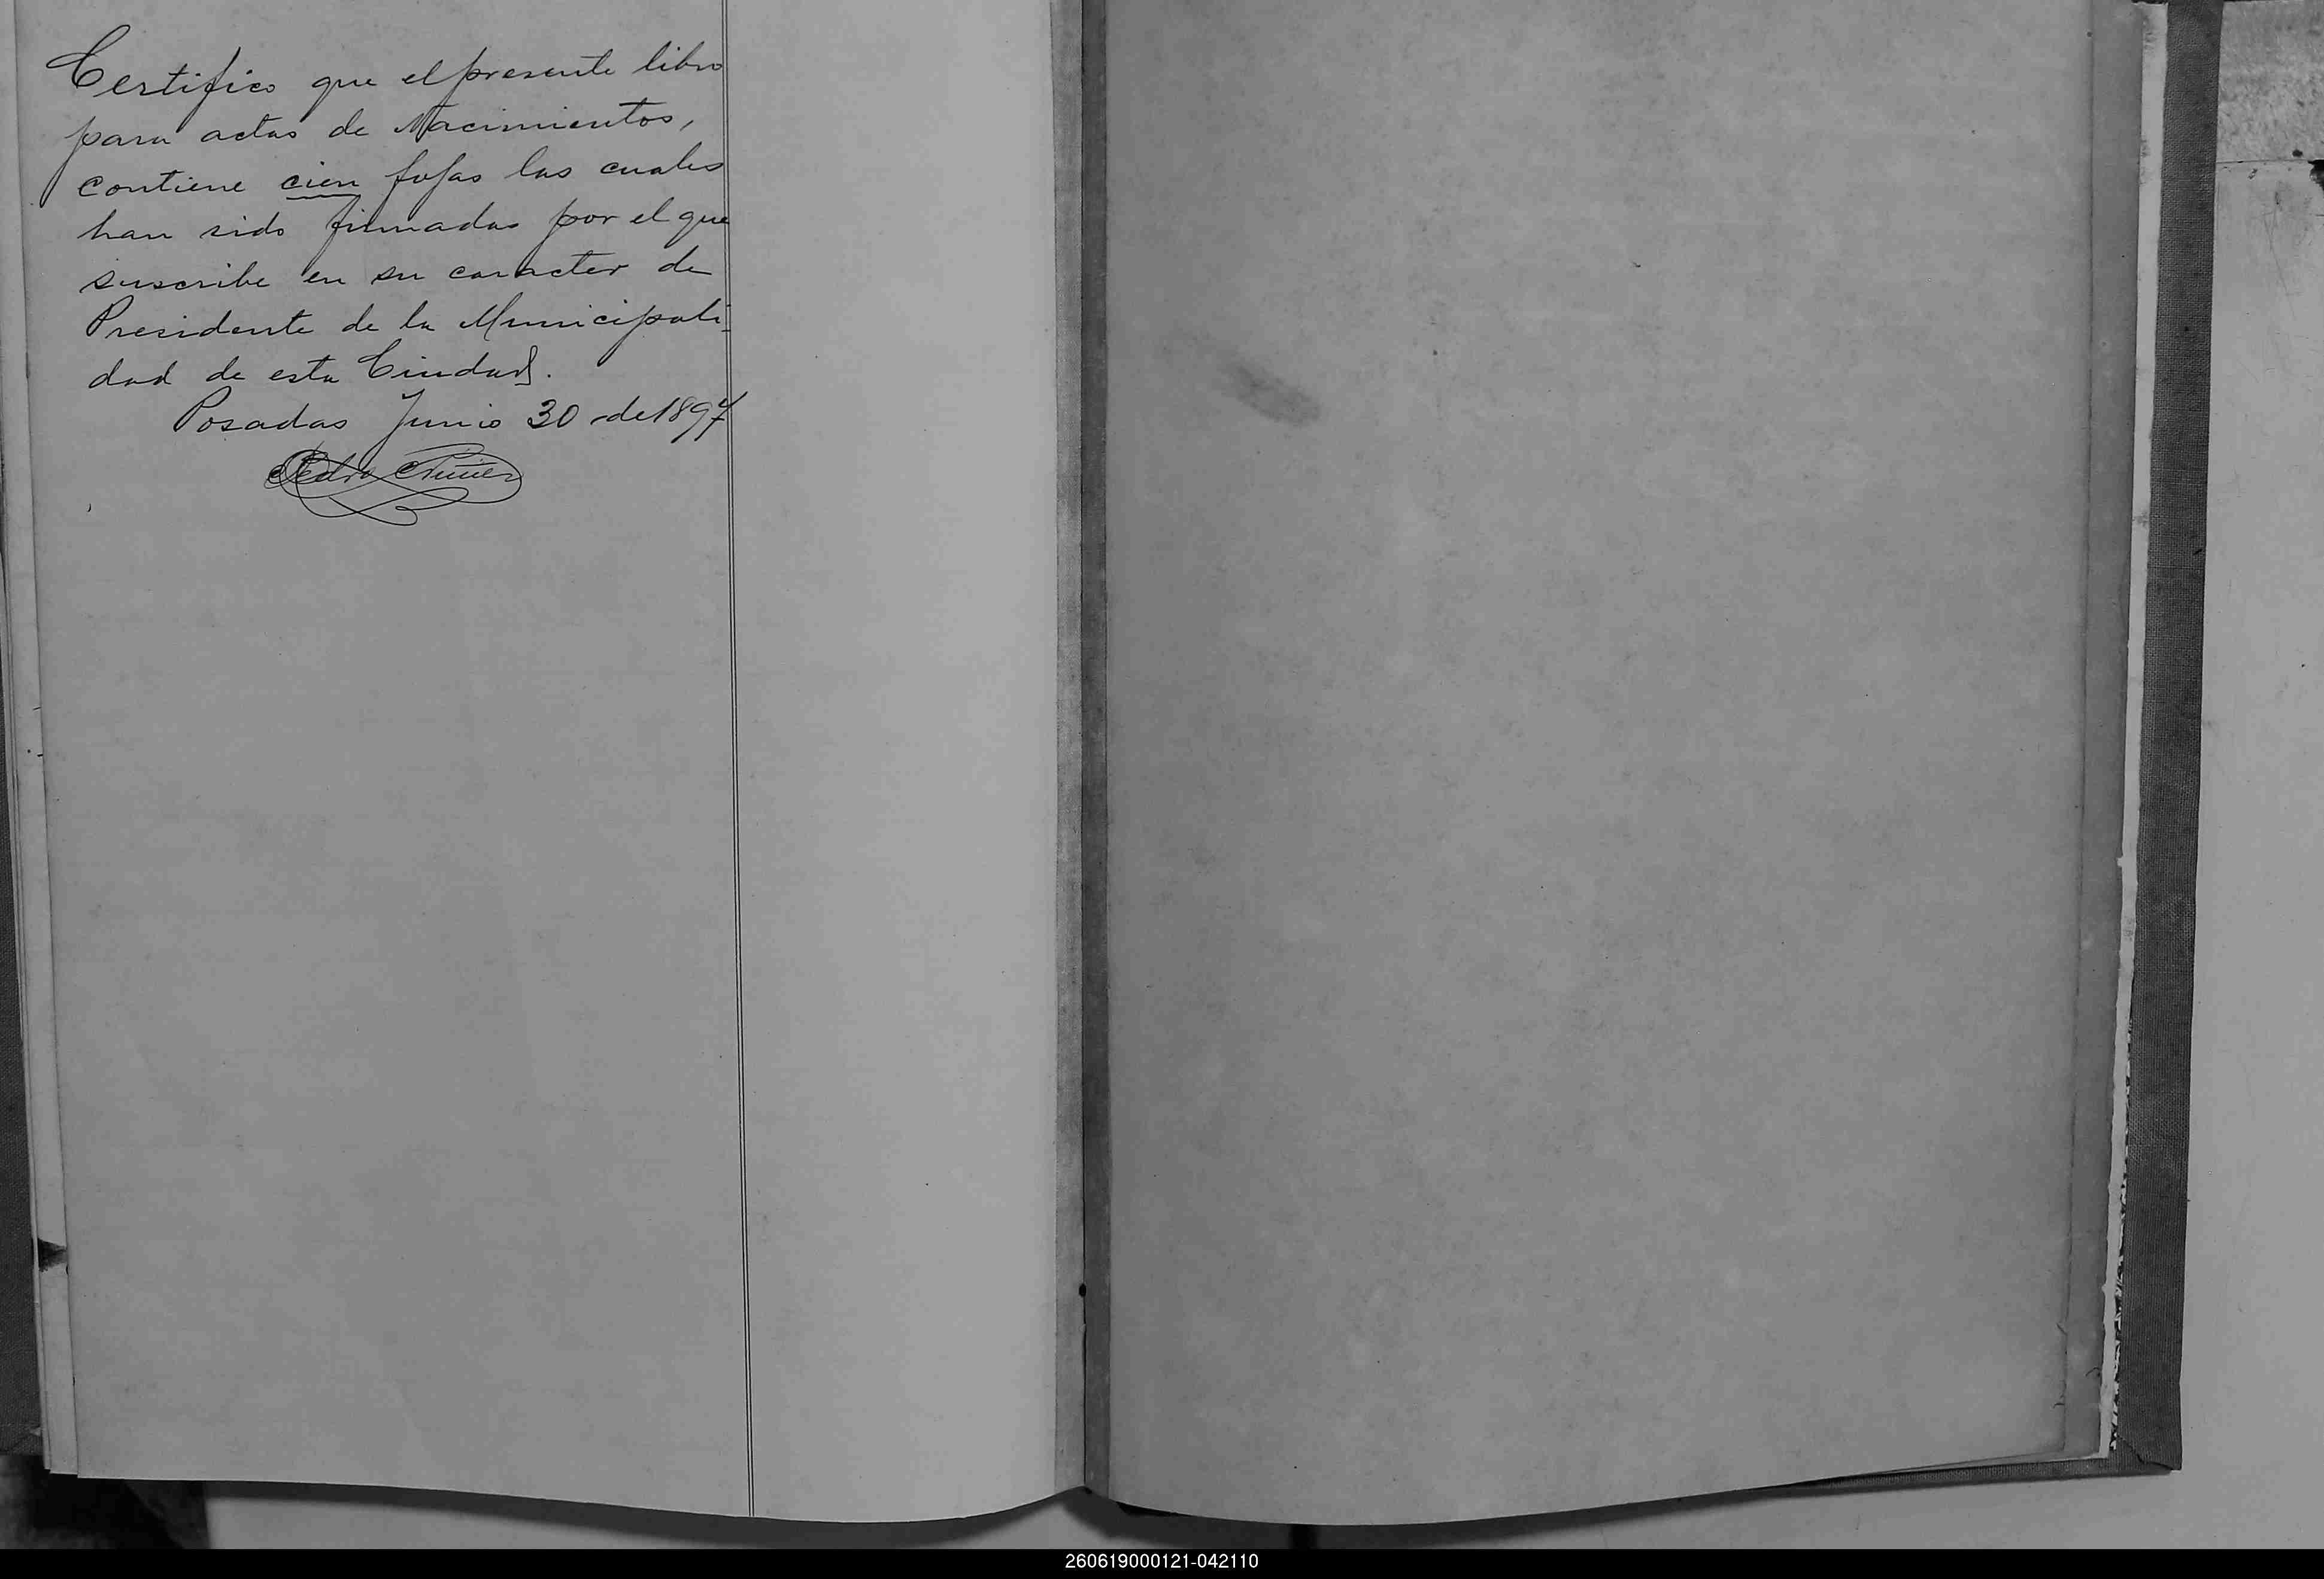 Certifico que el presente libro
para actas de Nacimientos,
contiene cien fojas las cuales
han sido firmadas por el que
suscribe en su caracter de
Presidente de la Municipali-
dad de esta Ciudad.
Posadas Junio 30 de 1897
Pedro Nuñez
260619000121-042110